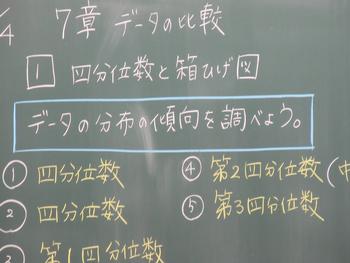 /4 7章 データの比較
1 四分位数と箱ひげ図
データの分布の傾向を調べよう。
① 四分位数
④ 第2四分位数(中
② 四分位数
⑤ 第3四分位数
③ 第1四分位数